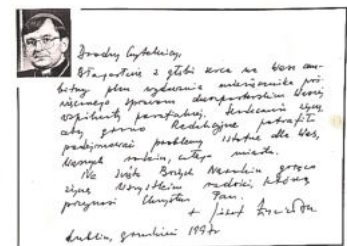 Drodzy Czytelnicy,
Błogosławię z głębi serca na Wasz am-
bitny plan wydawania miesięcznika poś-
więconego sprawom duszpasterskim Waszej
wspólnoty parafialnej. Serdecznie życzę,
aby grono Redakcyjne potrafiło
podejmować problemy istotne dla Was,
Waszych rodzin, całego miasta.
Na Święta Bożych Narodzin gorąco
życzę Wszystkim radości, którą
przynosi Chrystus Pan.
+ Józef Życiński
Lublin, grudzień 1997 r.